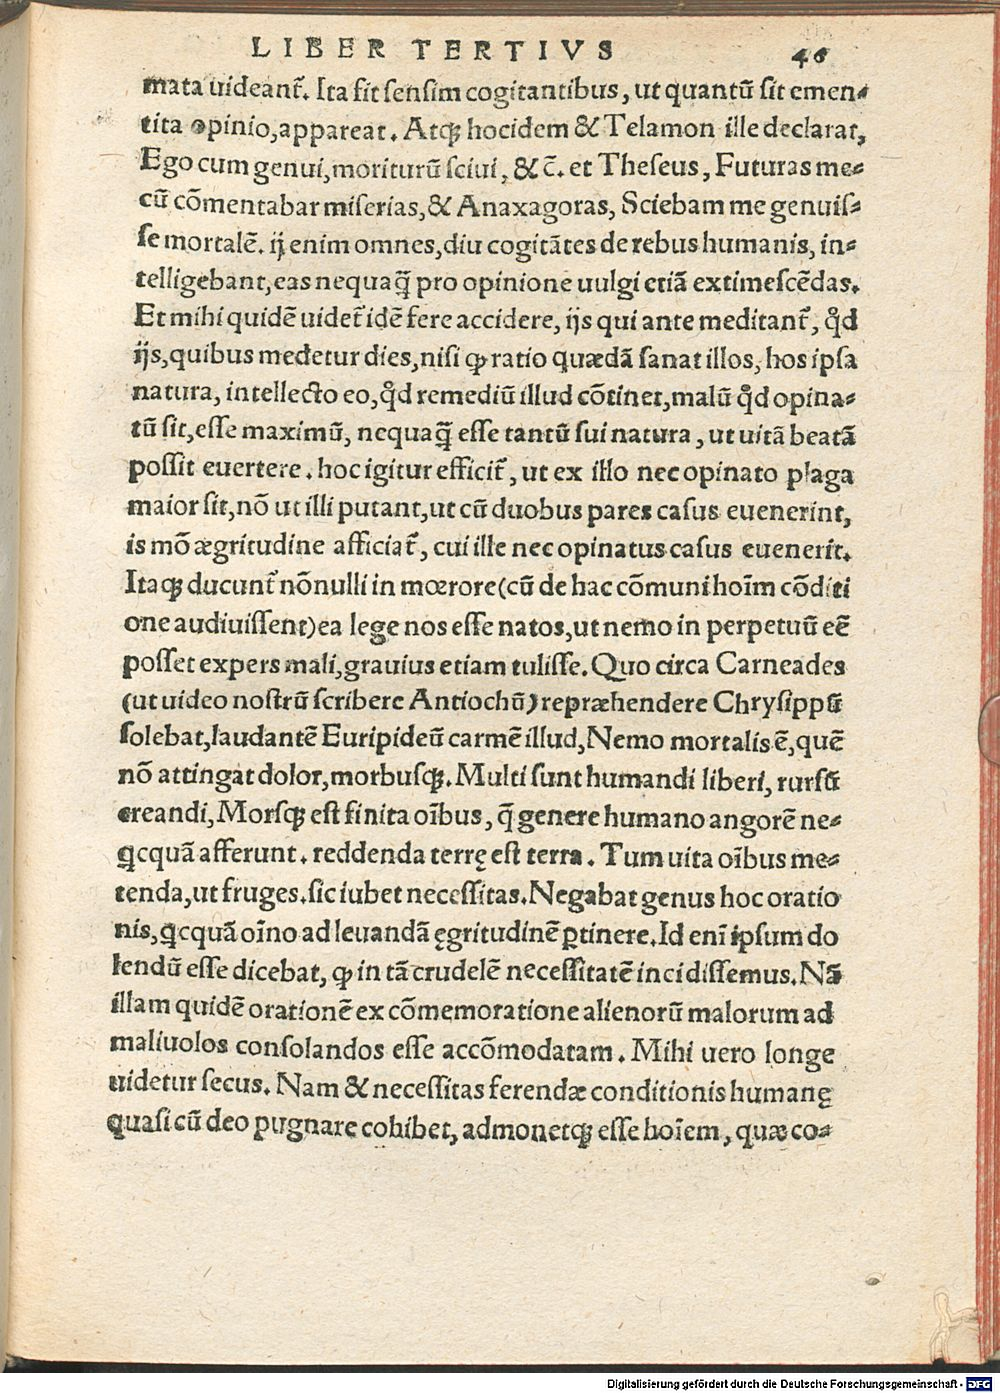 LIBER TERTIVS 46
mata uideant᷑. Ita fit ſenſim cogitantibus, ut quantũ ſit emen-
tita opinio, appareat. Atq; hoc idem & Telamon ille declarat,
Ego cum genui, moriturũ ſciui, & c̃. et Theſeus, Futuras me-
cũ cõmentabar miſerias, & Anaxagoras, Sciebam me genuiſ-
ſe mortalẽ. ij enim omnes, diu cogitãtes de rebus humanis, in-
telligebant, eas nequaq̃ pro opinione uulgi etiã extimeſcẽdas.
Et mihi quidẽ uidet᷑ idẽ fere accidere, ijs qui ante meditant᷑, qđ
ijs, quibus medetur dies, niſi ꝙ ratio quædã ſanat illos, hos ipſa
natura, intellecto eo, qđ remediũ illud cõtinet, malũ qđ opina-
tũ ſit, eſſe maximũ, nequaq̃ eſſe tantũ ſui natura, ut uitã beatã
poſſit euertere. hoc igitur efficit᷑, ut ex illo nec opinato plaga
maior ſit, nõ ut illi putant, ut cũ duobus pares caſus euenerint,
is mõ ægritudine afficiat᷑, cui ille nec opinatus caſus euenerit.
Itaq; ducunt᷑ nõnulli in mœrore (cũ de hac cõmuni hoĩm cõditi
one audiuiſſent) ea lege nos eſſe natos, ut nemo in perpetuũ eẽ
poſſet expers mali, grauius etiam tuliſſe. Quo circa Carneades
(ut uideo noſtrũ ſcribere Antiochũ) repræhendere Chryſippũ
ſolebat, laudantẽ Euripideũ carmẽ illud, Nemo mortalis ẽ, quẽ
nõ attingat dolor, morbuſq;. Multi ſunt humandi liberi, rurſũ
creandi, Morſq; eſt finita oĩbus, q̃ genere humano angorẽ ne-
qcquã afferunt. reddenda terrę eſt terra. Tum uita oĩbus me-
tenda, ut fruges. ſic iubet neceſſitas. Negabat genus hoc oratio
nis, qcquã oĩno ad leuandã ęgritudinẽ ꝑtinere. Id enĩ ipſum do
lendũ eſſe dicebat, ꝙ in tã crudelẽ neceſſitatẽ incidiſſemus. Nã
illam quidẽ orationẽ ex cõmemoratione alienorũ malorum ad
maliuolos conſolandos eſſe accõmodatam. Mihi uero longe
uidetur ſecus. Nam & neceſſitas ferendæ conditionis humanę
quaſi cũ deo pugnare cohibet, admonetq; eſſe hoĩem, quæ co-
Digitalisierung gefördert durch die Deutsche Forschungsgemeinschaft - DFG